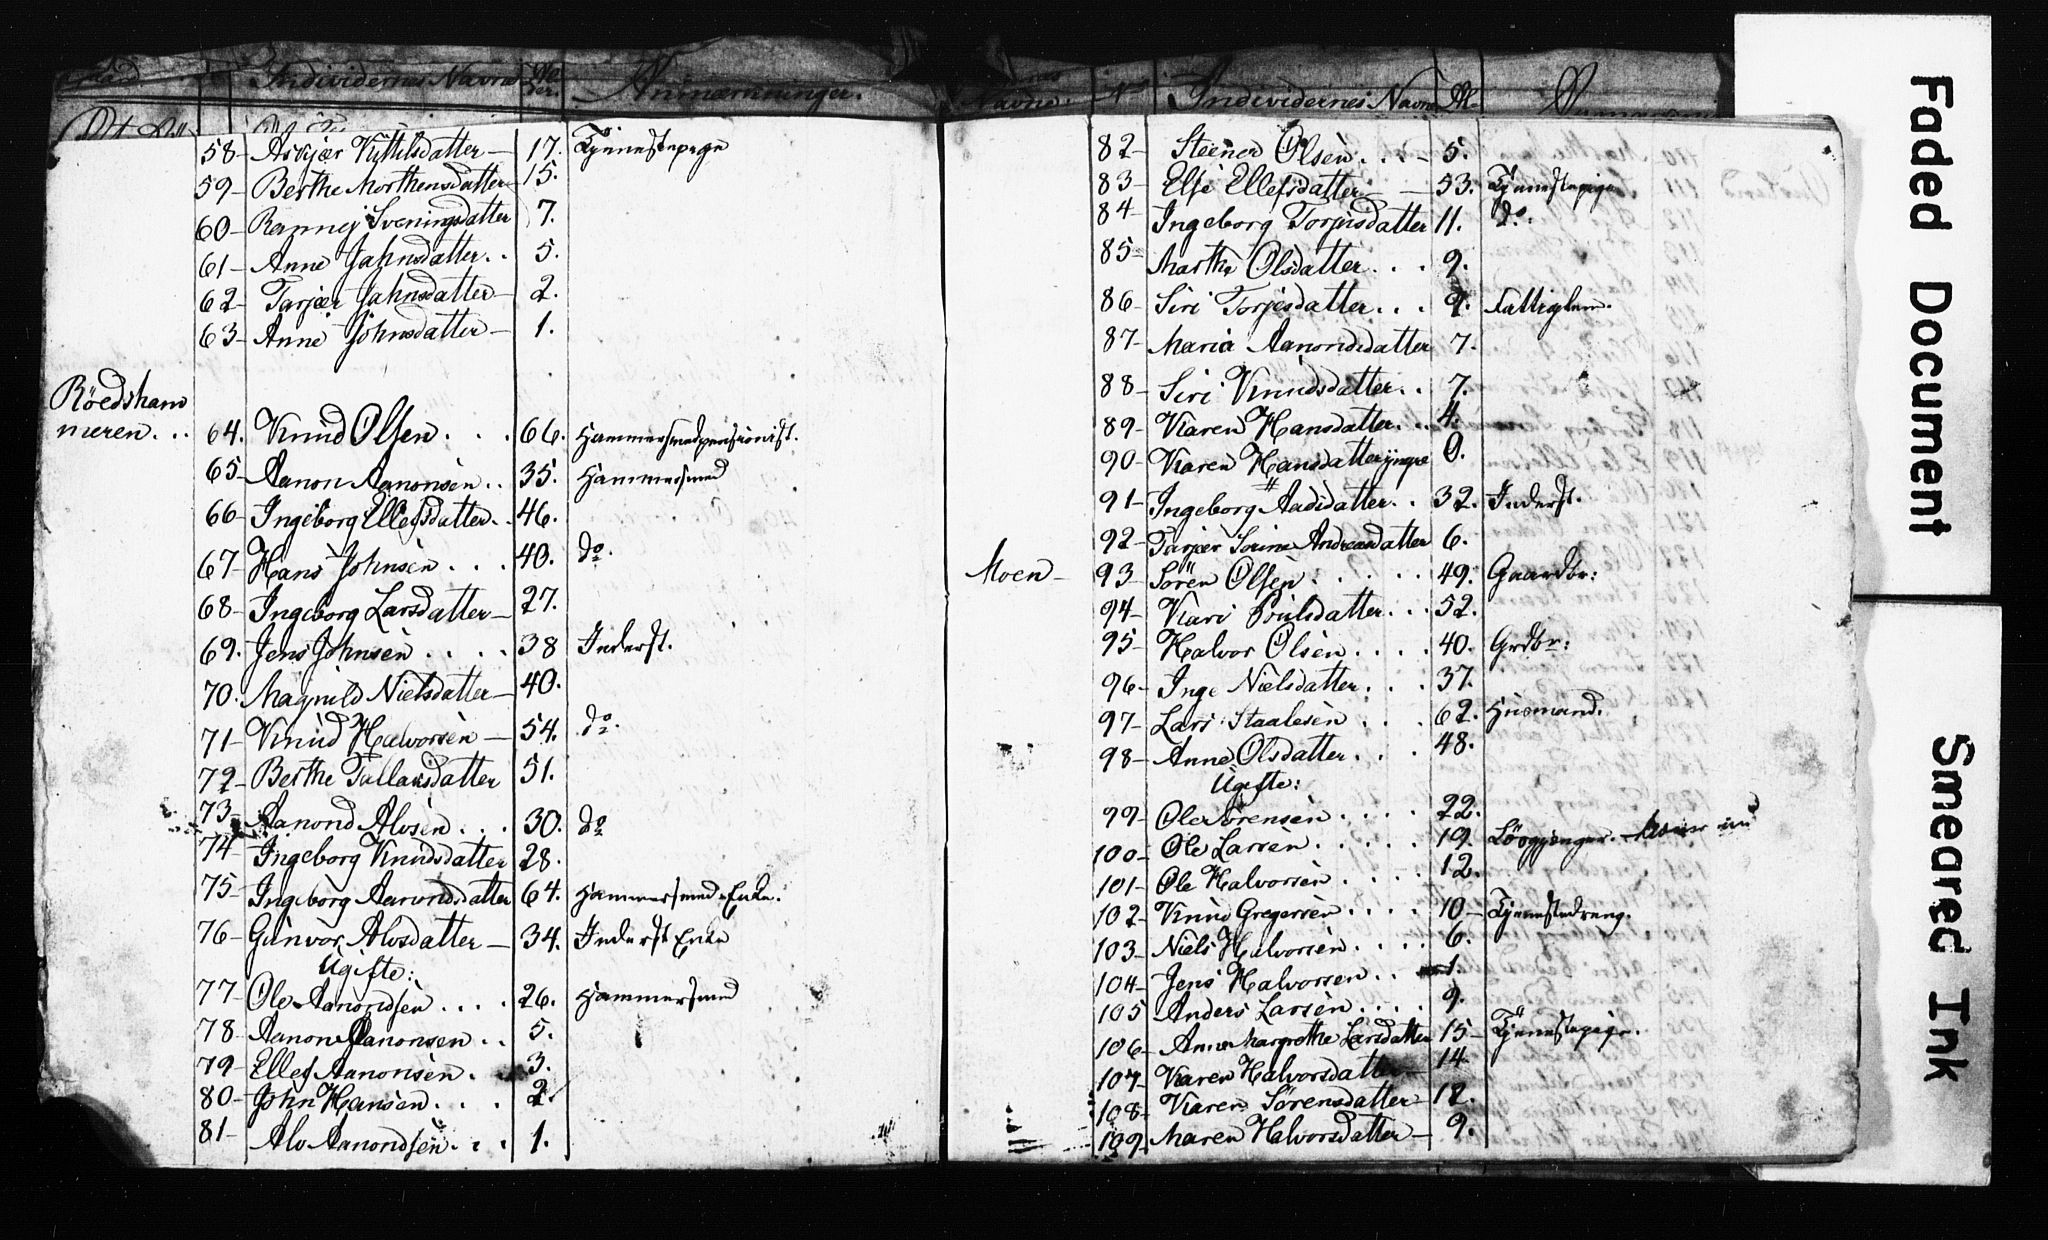 Individernes Navne Anmærkninger.
58- Askjær Kittilsdatter - 17. Tjenestepige
59- Berthe Morthensdatter 15.
60- Ranney Sveningsdatter 7.
61- Anne Jahnsdatter . . 5.
62- Tarjær Jahnsdatter - 2.
63- Anne Johnsdatter - 1.
Röedsham
meren . . . 64. Knud Olsen . . . 66. Hammersmedpensionist.
65- Aanon Aanonsen . . 35. Hammersmed
66- Ingeborg Ellefsdatter . . 46.
67- Hans Johnsen . . . 40. do.
68- Ingeborg Larsdatter - 27.
69. Jens Johnsen . . . . 38 Inderst.
70. Magnild Nielsdatter - 40.
71- Knud Halvorsen - 54. do.
72- Berthe Tallaksdatter 51.
73- Aanond Alvsen . . . 30. do
74- Ingeborg Knudsdatter 28.
75- Ingeborg Aanondsdatter 64. Hammersmed-Enke.
76- Gunvor Alvsdatter - 34. Inderst Enke
Ugifte:
77- Ole Aanondsen . . . . 26. Hammersmed
78- Aanon Aanonsen . . 5.
79- Ellef Aanonsen . 3.
80- John Hansen . . . . 2.
81- Alv Aanondsen . . . 1.
Navne. No Individernes Navne Al-
82- Steener Olsen . . . - 5.
83- Else Ellefsdatter - - 53. Tjenestepige
84- Ingeborg Torjusdatter 11. do.
85- Marthe Olsdatter . . . 9.
86- Siri Torjesdatter . . . 9. Fattiglem.
87- Maria Aanondsdatter 7.
88- Siri Knudsdatter . . 7.
89- Karen Hansdatter . . . 4.
90- Karen Hansdatter yngre 0.
91- Ingeborg Aadsdatter . . 32. Inderst.
92- Tarjær Sorine Andreasdatter 6.
Moen - 93- Sören Olsen . . . . . 49. Gaardbr:
94- Kari Poulsdatter . . . 52.
95- Halvor Olsen . . . . 40. Grdbr:
96- Inge Nielsdatter . . . 37.
97- Lars Staalesen . . . 62. Husmand.
98- Anne Olsdatter . . . 48.
Ugifte:
99- Ole Sörensen . . . . 22.
100- Ole Larsen . . . . . 19. Lösgjenger.
101- Ole Halvorsen . . . . 12.
102- Knud Gregersen . . . . 10- Tjenestedreng.
103- Niels Halvorsen . . . . 6.
104- Jens Halvorsen . . 1.
105 Anders Larsen . . . . 9.
106- Anne Margrethe Larsdatter 15- Tjenestepige.
107- Karen Halvorsdatter - 14
108- Karen Sörensdatter - 12.
109- Maren Halvorsdatter - 9.
Faded Document
Smeared Ink